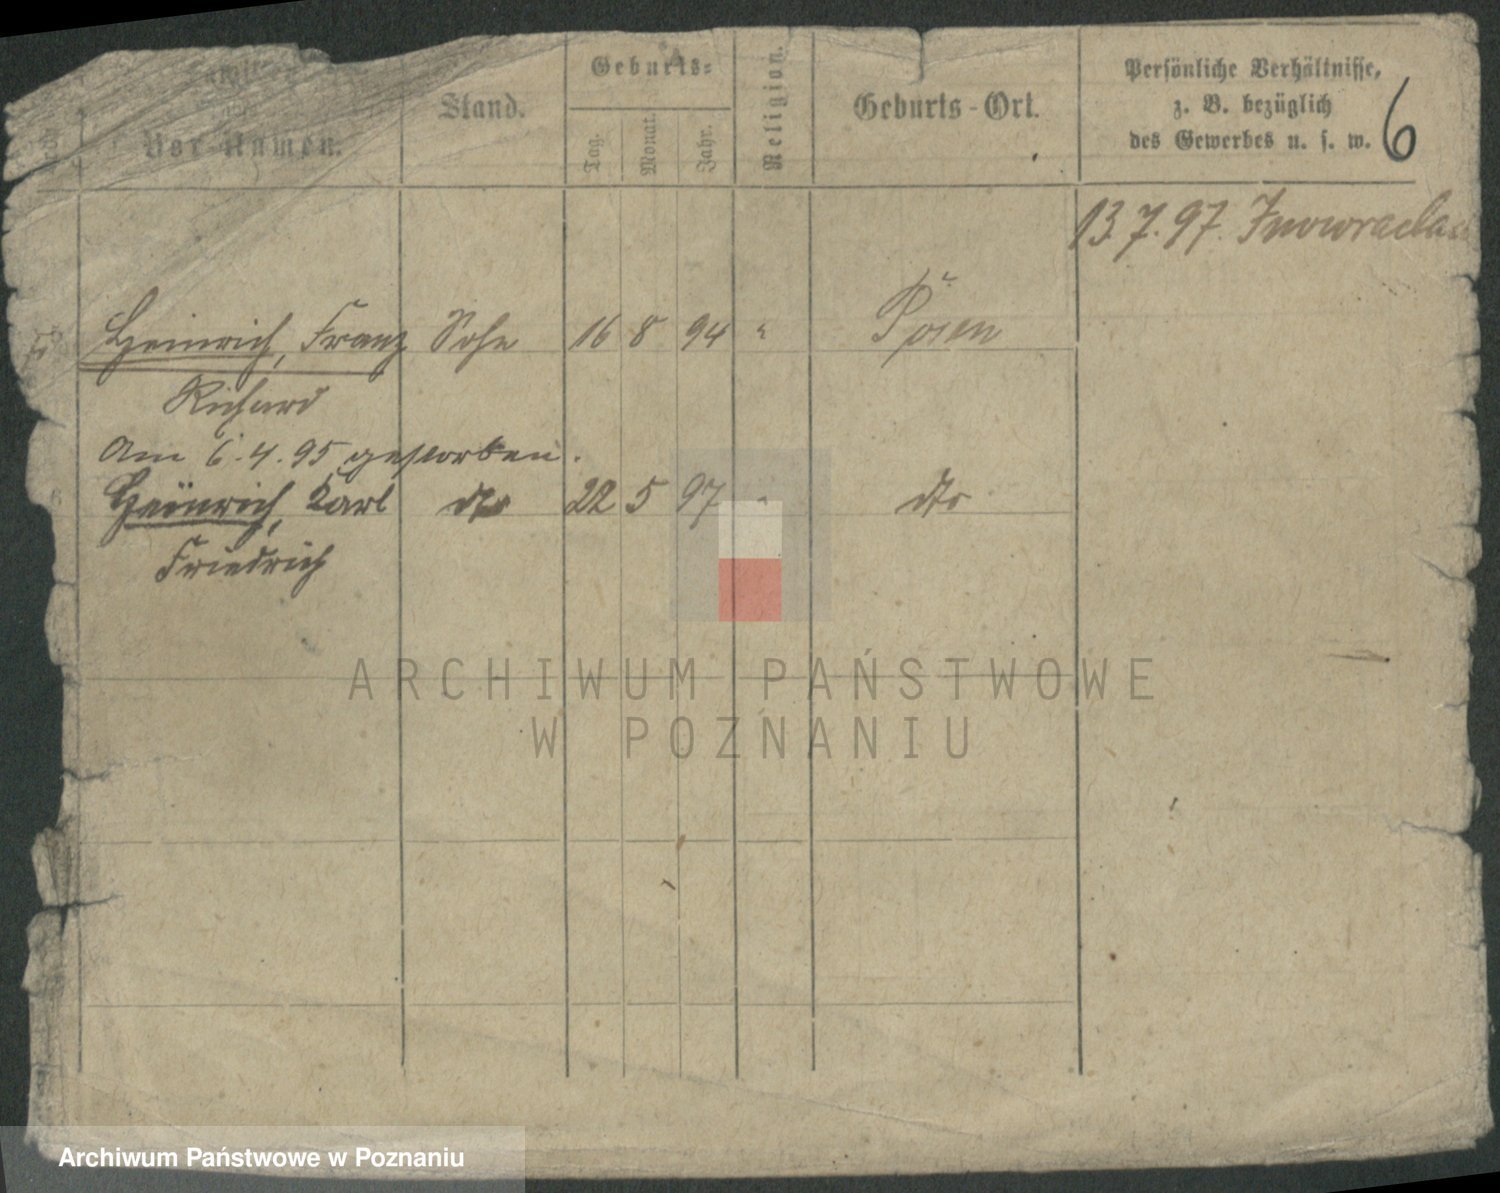 Familien-
Vor-Namen.
Stand.
Geburts-
Tag.
Monat.
Jahr.
Religion.
Geburts-Ort.
Persönliche Verhältnisse,
z. B. bezüglich
des Gewerbes u. s. w.
6
13.7.97. Inowraclaw
5 Heinrich, Franz Sohn 16 8 94 " Posen
Richard
Am 6.4.95 gestorben.
6 Heinrich, Karl dto 22 5 97 " dto
Friedrich
ARCHIWUM PAŃSTWOWE
W POZNANIU
Archiwum Państwowe w Poznaniu